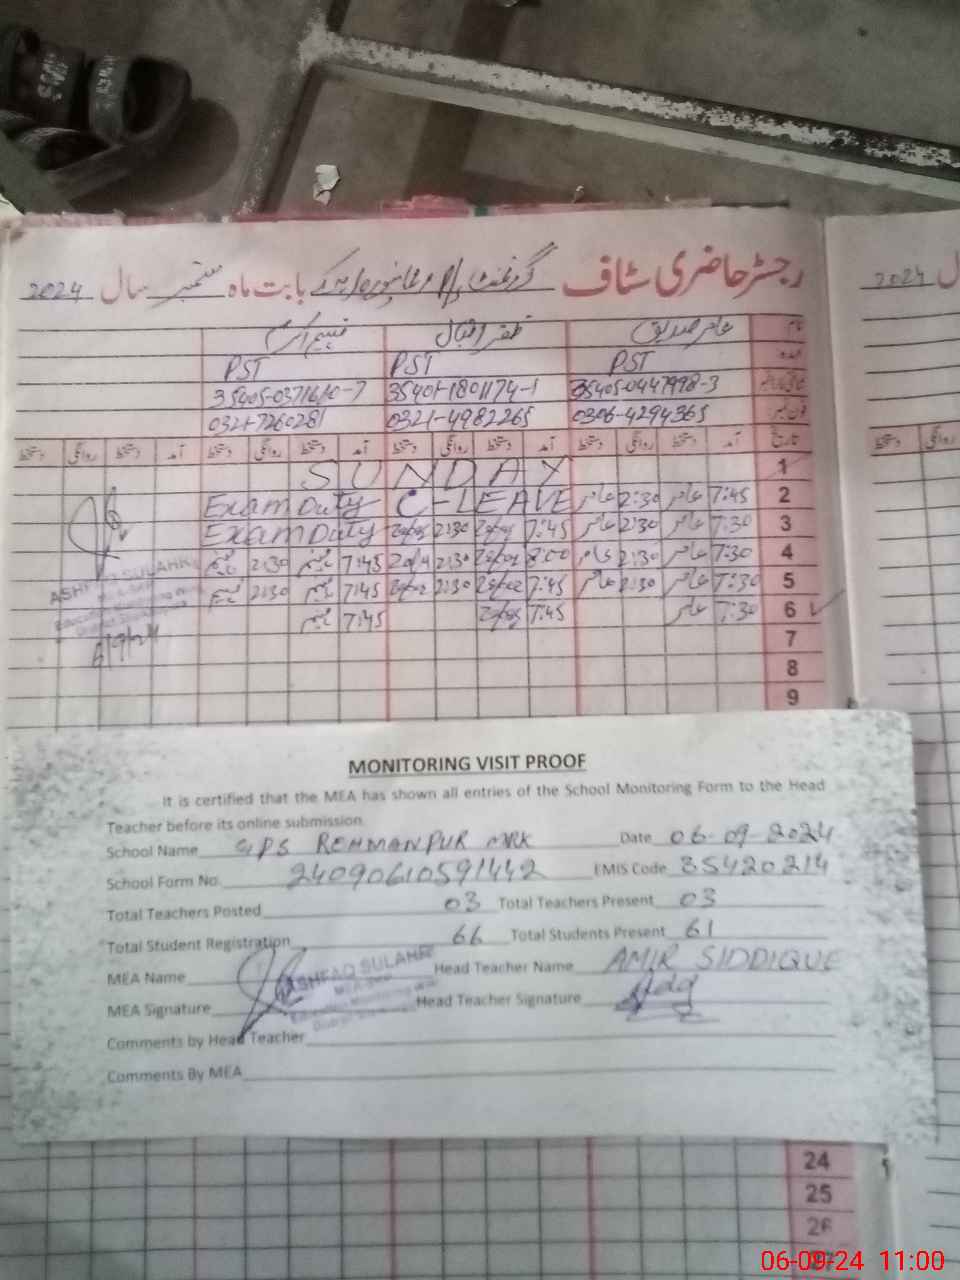 رجسٹر حاضری سٹاف گورنمنٹ بابت ماہ ستمبر سال 2024
2024 ل
نام عامر صدیق ظفر اقبال
عہدہ PST PST PST
35405-0447998-3 35401-1801174-1 35405-0371610-7
0306-4294365 0321-4982265 0321-7260281
تاریخ آمد دستخط روانگی دستخط آمد دستخط روانگی دستخط آمد دستخط روانگی دستخط آمد دستخط روانگی دستخط
1 SUNDAY
2 7:45 عامر 2:30 عامر C-LEAVE Exam Duty
3 7:30 عامر 2:30 عامر 7:45 2:30 Exam Duty
4 7:30 عامر 2:30 عامر 8:00 2:30 7:45 2:30
5 7:30 عامر 2:30 عامر 7:45 2:30 7:45 2:30
6 7:30 عامر 7:45 7:45
ASHFAQ SULAHRI
6/9/24
7
8
9
MONITORING VISIT PROOF
It is certified that the MEA has shown all entries of the School Monitoring Form to the Head
Teacher before its online submission.
School Name GPS REHMANPUR MRK Date 06-09-2024
School Form No. 24090610591442 EMIS Code 35420214
Total Teachers Posted 03 Total Teachers Present 03
Total Student Registration 66 Total Students Present 61
MEA Name ASHFAQ SULAHRI Head Teacher Name AMIR SIDDIQUE
MEA Signature Head Teacher Signature
Comments by Head Teacher
Comments By MEA
24
25
26
27
06-09-24 11:00